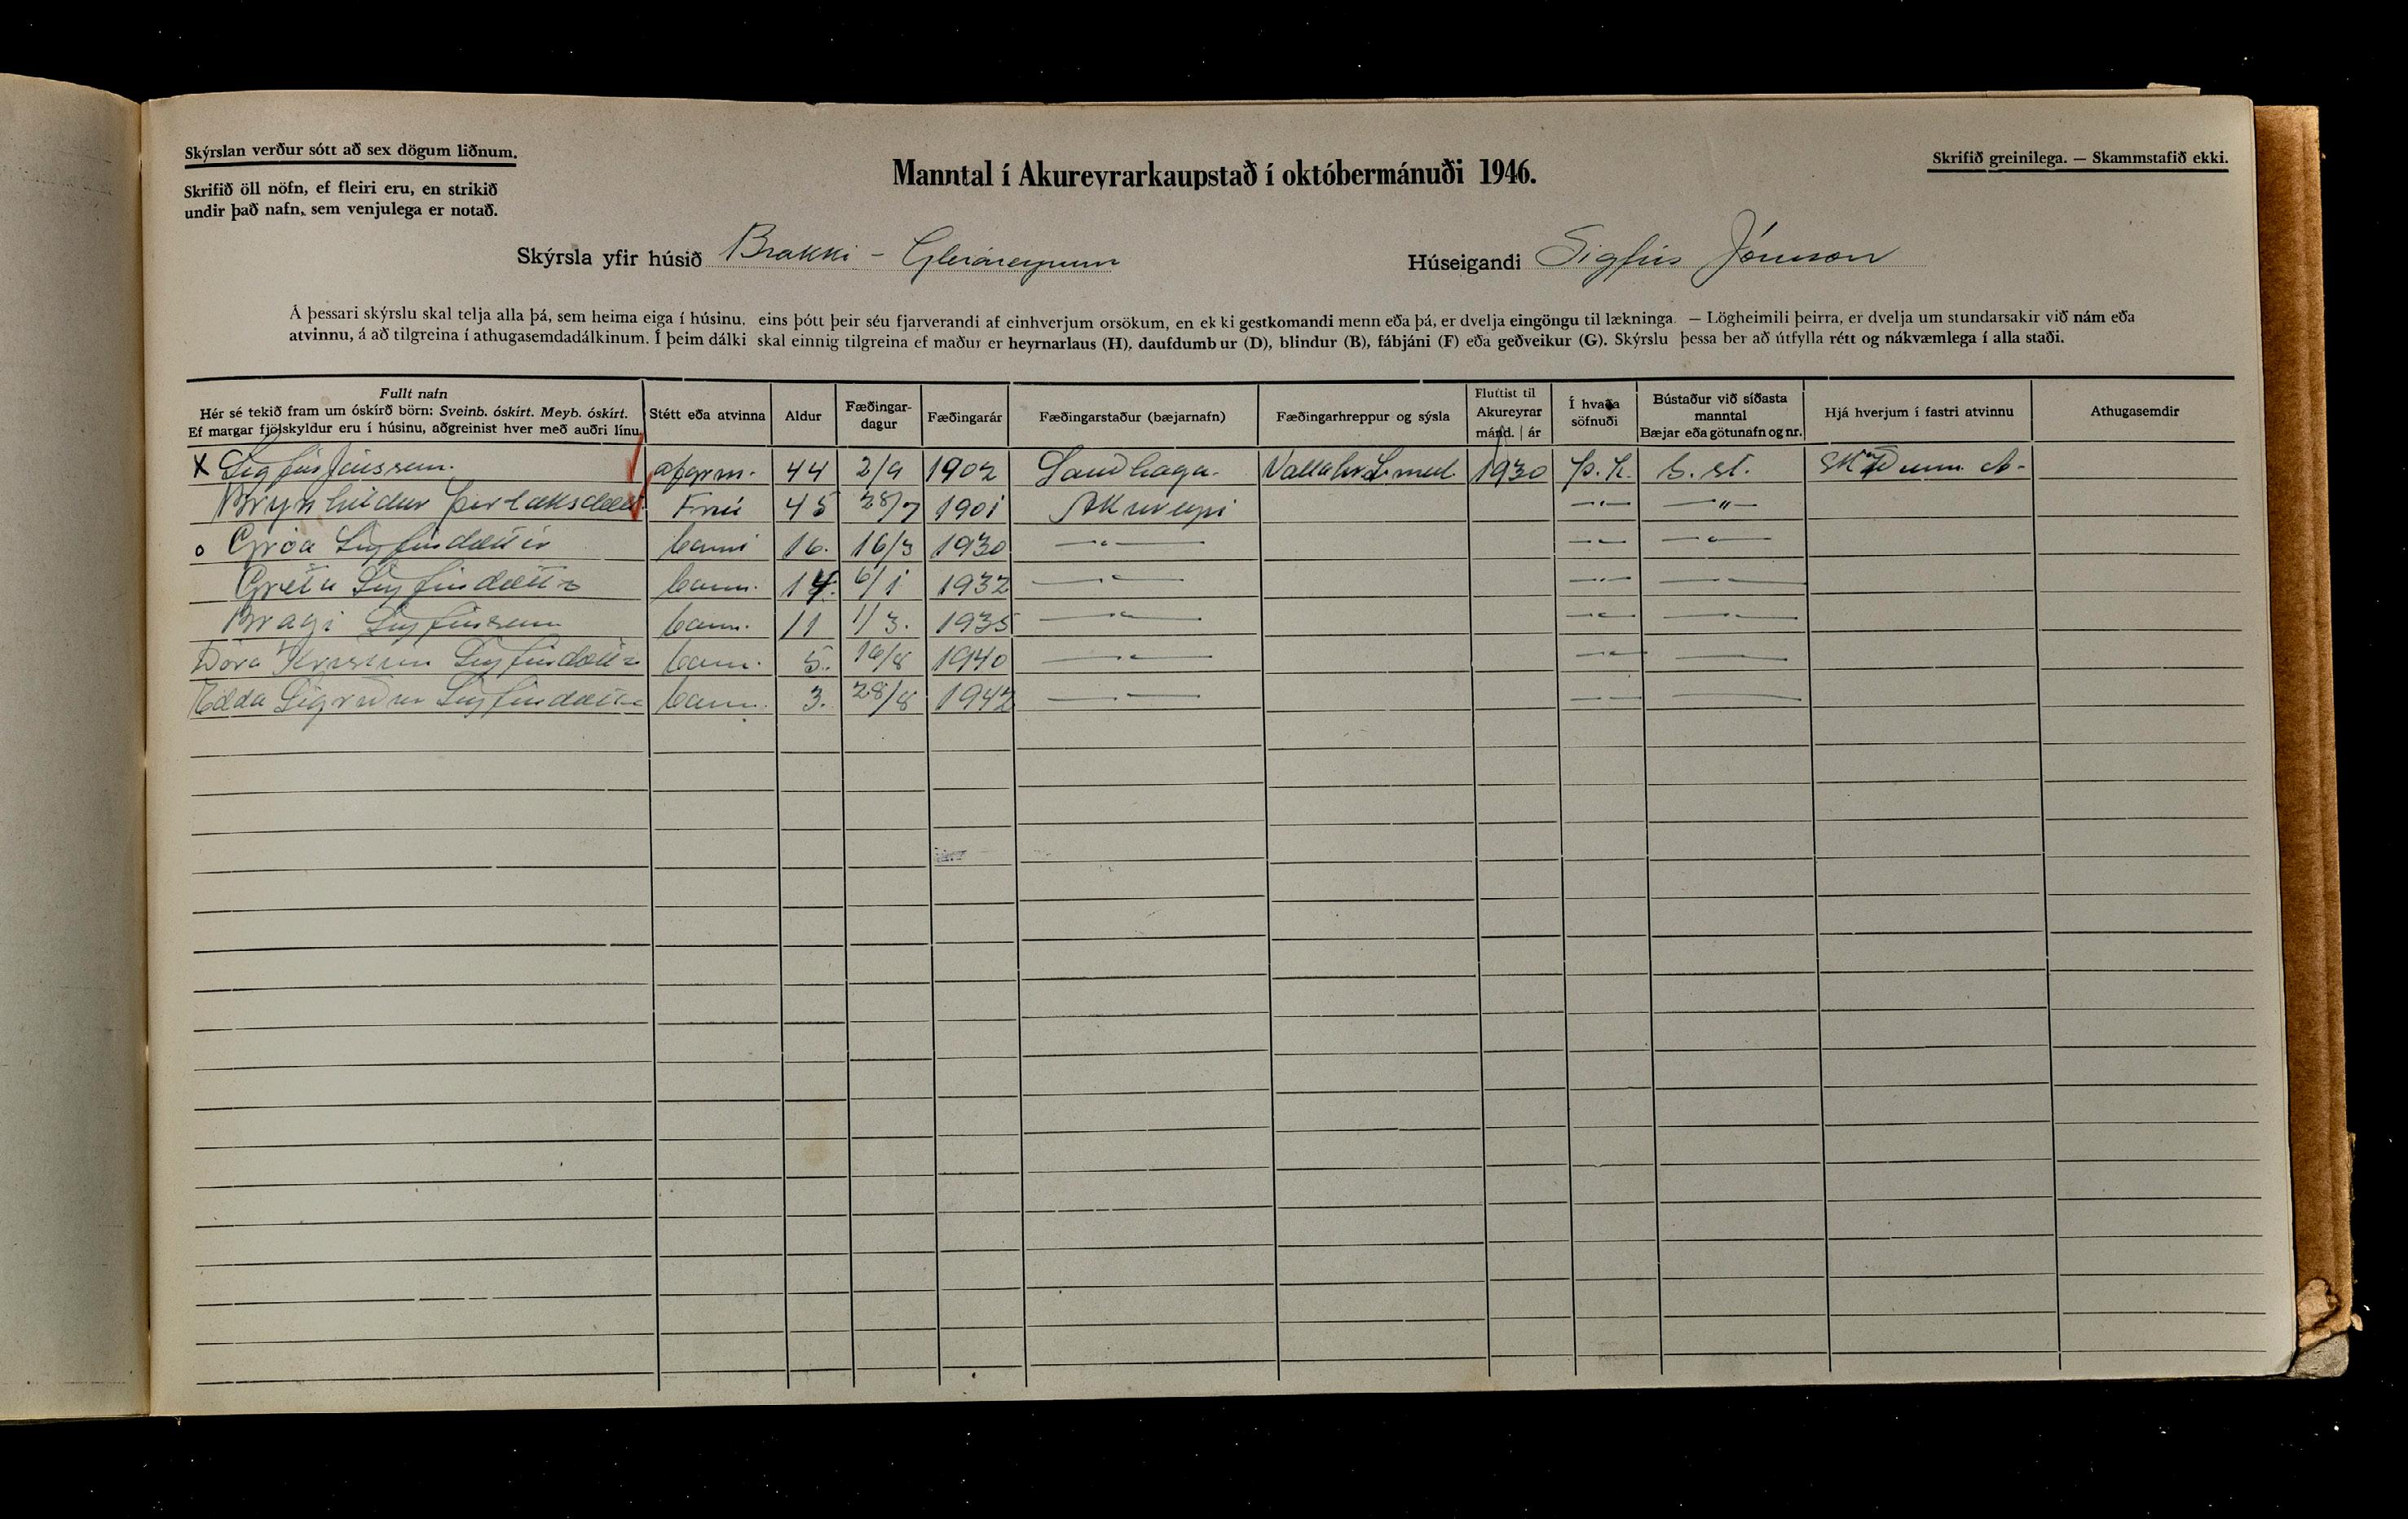 Skýrslan verður sótt að sex dögum liðnum.
Skrifið öll nöfn, ef fleiri eru, en strikið
undir það nafn, sem venjulega er notað.
Manntal í Akureyrarkaupstað í októbermánuði 1946.
Skrifið greinilega. — Skammstafið ekki.
Skýrsla yfir húsið Brakki - Gleráreyrum
Húseigandi Sigfús Jónsson
Á þessari skýrslu skal telja alla þá, sem heima eiga í húsinu, eins þótt þeir séu fjarverandi af einhverjum orsökum, en ekki gestkomandi menn eða þá, er dvelja eingöngu til lækninga. — Lögheimili þeirra, er dvelja um stundarsakir við nám eða
atvinnu, á að tilgreina í athugasemdadálkinum. Í þeim dálki skal einnig tilgreina ef maður er heyrnarlaus (H), daufdumbur (D), blindur (B), fábjáni (F) eða geðveikur (G). Skýrslu þessa ber að útfylla rétt og nákvæmlega í alla staði.
Fullt nafn
Hér sé tekið fram um óskírð börn: Sveinb. óskírt. Meyb. óskírt.
Ef margar fjölskyldur eru í húsinu, aðgreinist hver með auðri línu.
Stétt eða atvinna
Aldur
Fæðingar-
dagur
Fæðingarár
Fæðingarstaður (bæjarnafn)
Fæðingarhreppur og sýsla
Fluttist til
Akureyrar
mánd. | ár
Í hvaða
söfnuði
Bústaður við síðasta
manntal
Bæjar eða götunafn og nr.
Hjá hverjum í fastri atvinnu
Athugasemdir
X Sigfús Jónsson. afgrm. 44 2/9 1902 Sandhaga. 1930 Þ.k. S. st.
Brynhildur Þorláksdóttir Frú 45 28/7 1901 Akureyri — " — — " —
o Gróa Sigfúsdóttir barn 16. 16/3 1930 — " — — " — — " —
Gréta Sigfúsdóttir barn. 14. 6/1 1932 — " — — " — — " —
Bragi Sigfússon barn. 11 1/3. 1935 — " — — " — — " —
Dóra Kristín Sigfúsdóttir barn. 5. 16/8 1940 — " — — " — —
Edda Sigrún Sigfúsdóttir barn. 3. 28/8 1942 — " — — — —